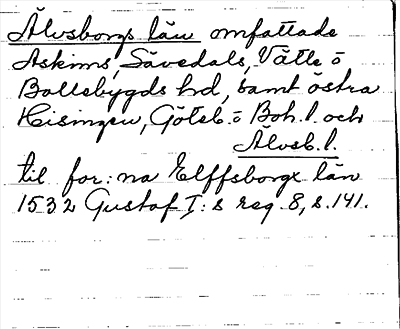 Älvsborgs län omfattade
Askims, Sävedals, Vätle o
Bollebygds hd, samt östra
Hisingen, Göteb. o Boh. l. och
Älvsb. l.
til for: na Elffsborgx län
1532 Gustaf I: s reg. 8, s. 141.